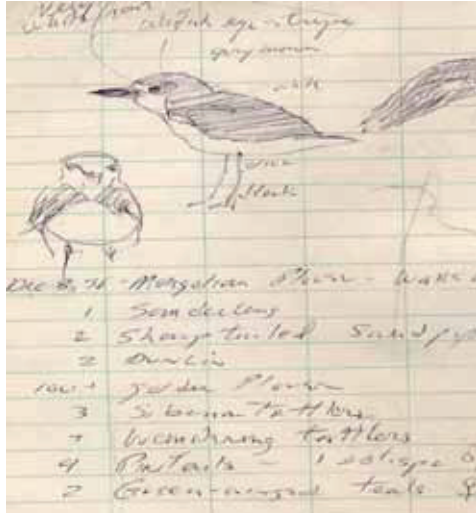 Very
white front
eye stripe
gray brown
white
olive
black
Dec 8, Mongolian Plover - Wake
1 Sanderling
2 Sharp tailed Sandp
2 Dunlin
100+ golden Plover
3 Siberian tattlers
7 Wandering tattlers
4 Pintails - 1 eclipse
2 Green-winged teals ♀